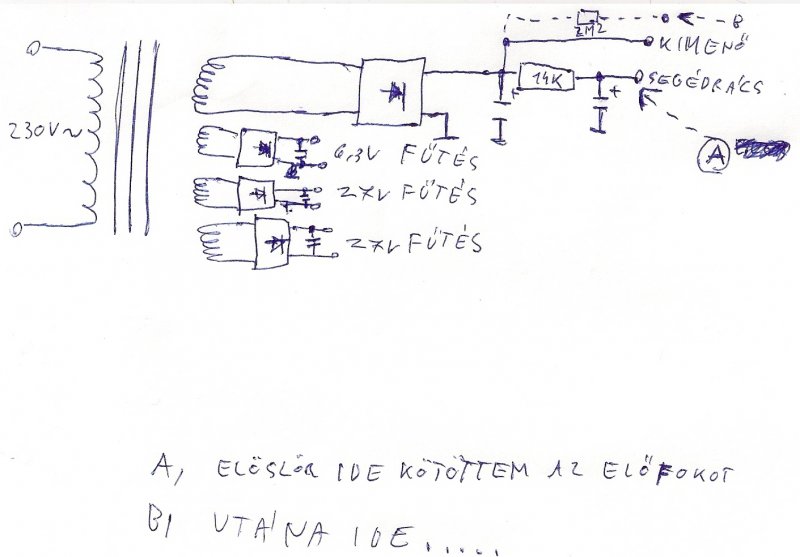 B
2M2
KIMENŐ
14K
+
+
SEGÉDRÁCS
230V~
A
6,3V FŰTÉS
27V FŰTÉS
27V FŰTÉS
A, ELŐSLÖR IDE KÖTÖTTEM AZ ELŐFOKOT
B, UTÁNA IDE.....